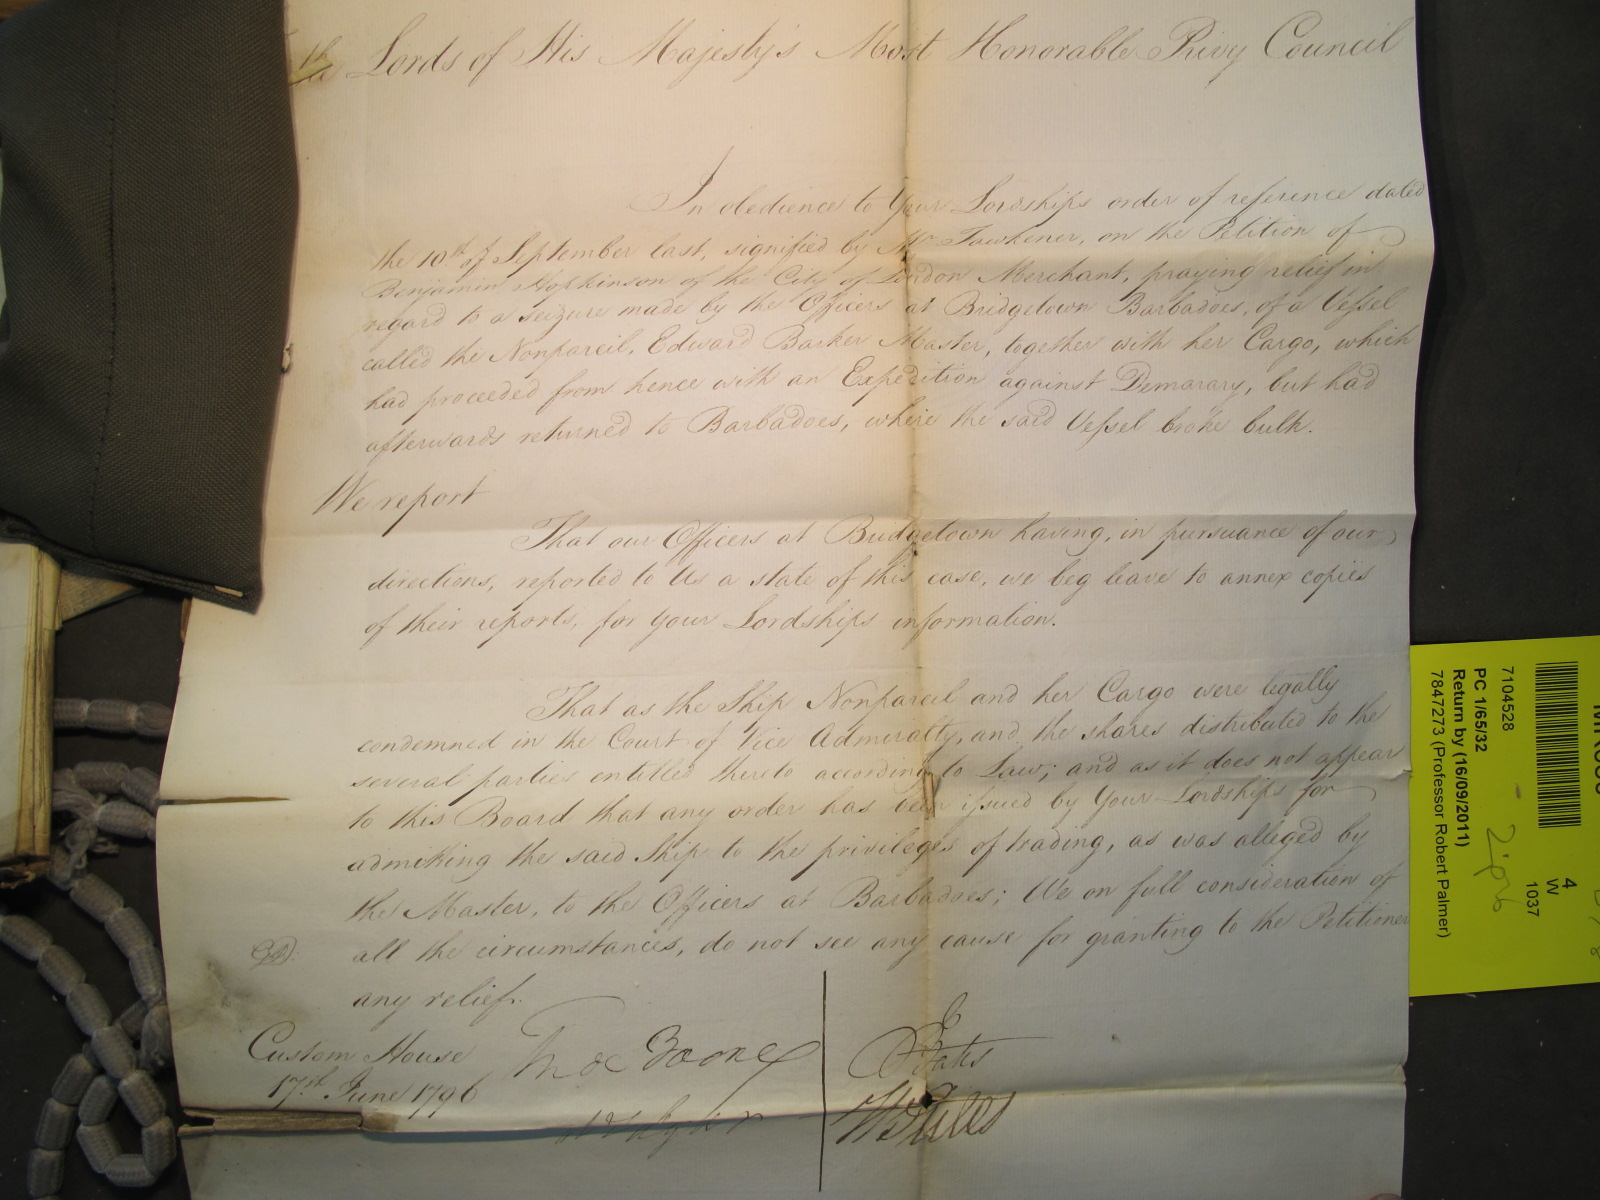 the Lords of His Majesty's Most Honorable Privy Council
In obedience to Your Lordships order of reference dated
the 10th of September last, signified by Mr Fawkener, on the Petition of
Benjamin Hopkinson of the City of London Merchant, praying relief in
regard to a seizure made by the Officers at Bridgetown Barbadoes, of a Vessel
called the Nonpareil, Edward Barker Master, together with her Cargo, which
had proceeded from hence with an Expedition against Demarary, but had
afterwards returned to Barbadoes, where the said Vessel broke bulk.
We report
That our Officers at Bridgetown having, in pursuance of our
directions, reported to Us a state of this case, we beg leave to annex copies
of their reports, for your Lordships information.
That as the Ship Nonpareil and her Cargo were legally
condemned in the Court of Vice Admiralty, and the shares distributed to the
several parties entitled thereto according to Law; and as it does not appear
to this Board that any order has been issued by Your Lordships for
admitting the said Ship to the privileges of trading, as was alleged by
the Master, to the Officers at Barbadoes; We on full consideration of
all the circumstances, do not see any cause for granting to the Petitioner
any relief.
Custom House
17th June 1796
Tho Boone
J Bates
W Stiles
4
W
1037
7104528
PC 1/65/32
Return by (16/09/2011)
7847273 (Professor Robert Palmer)